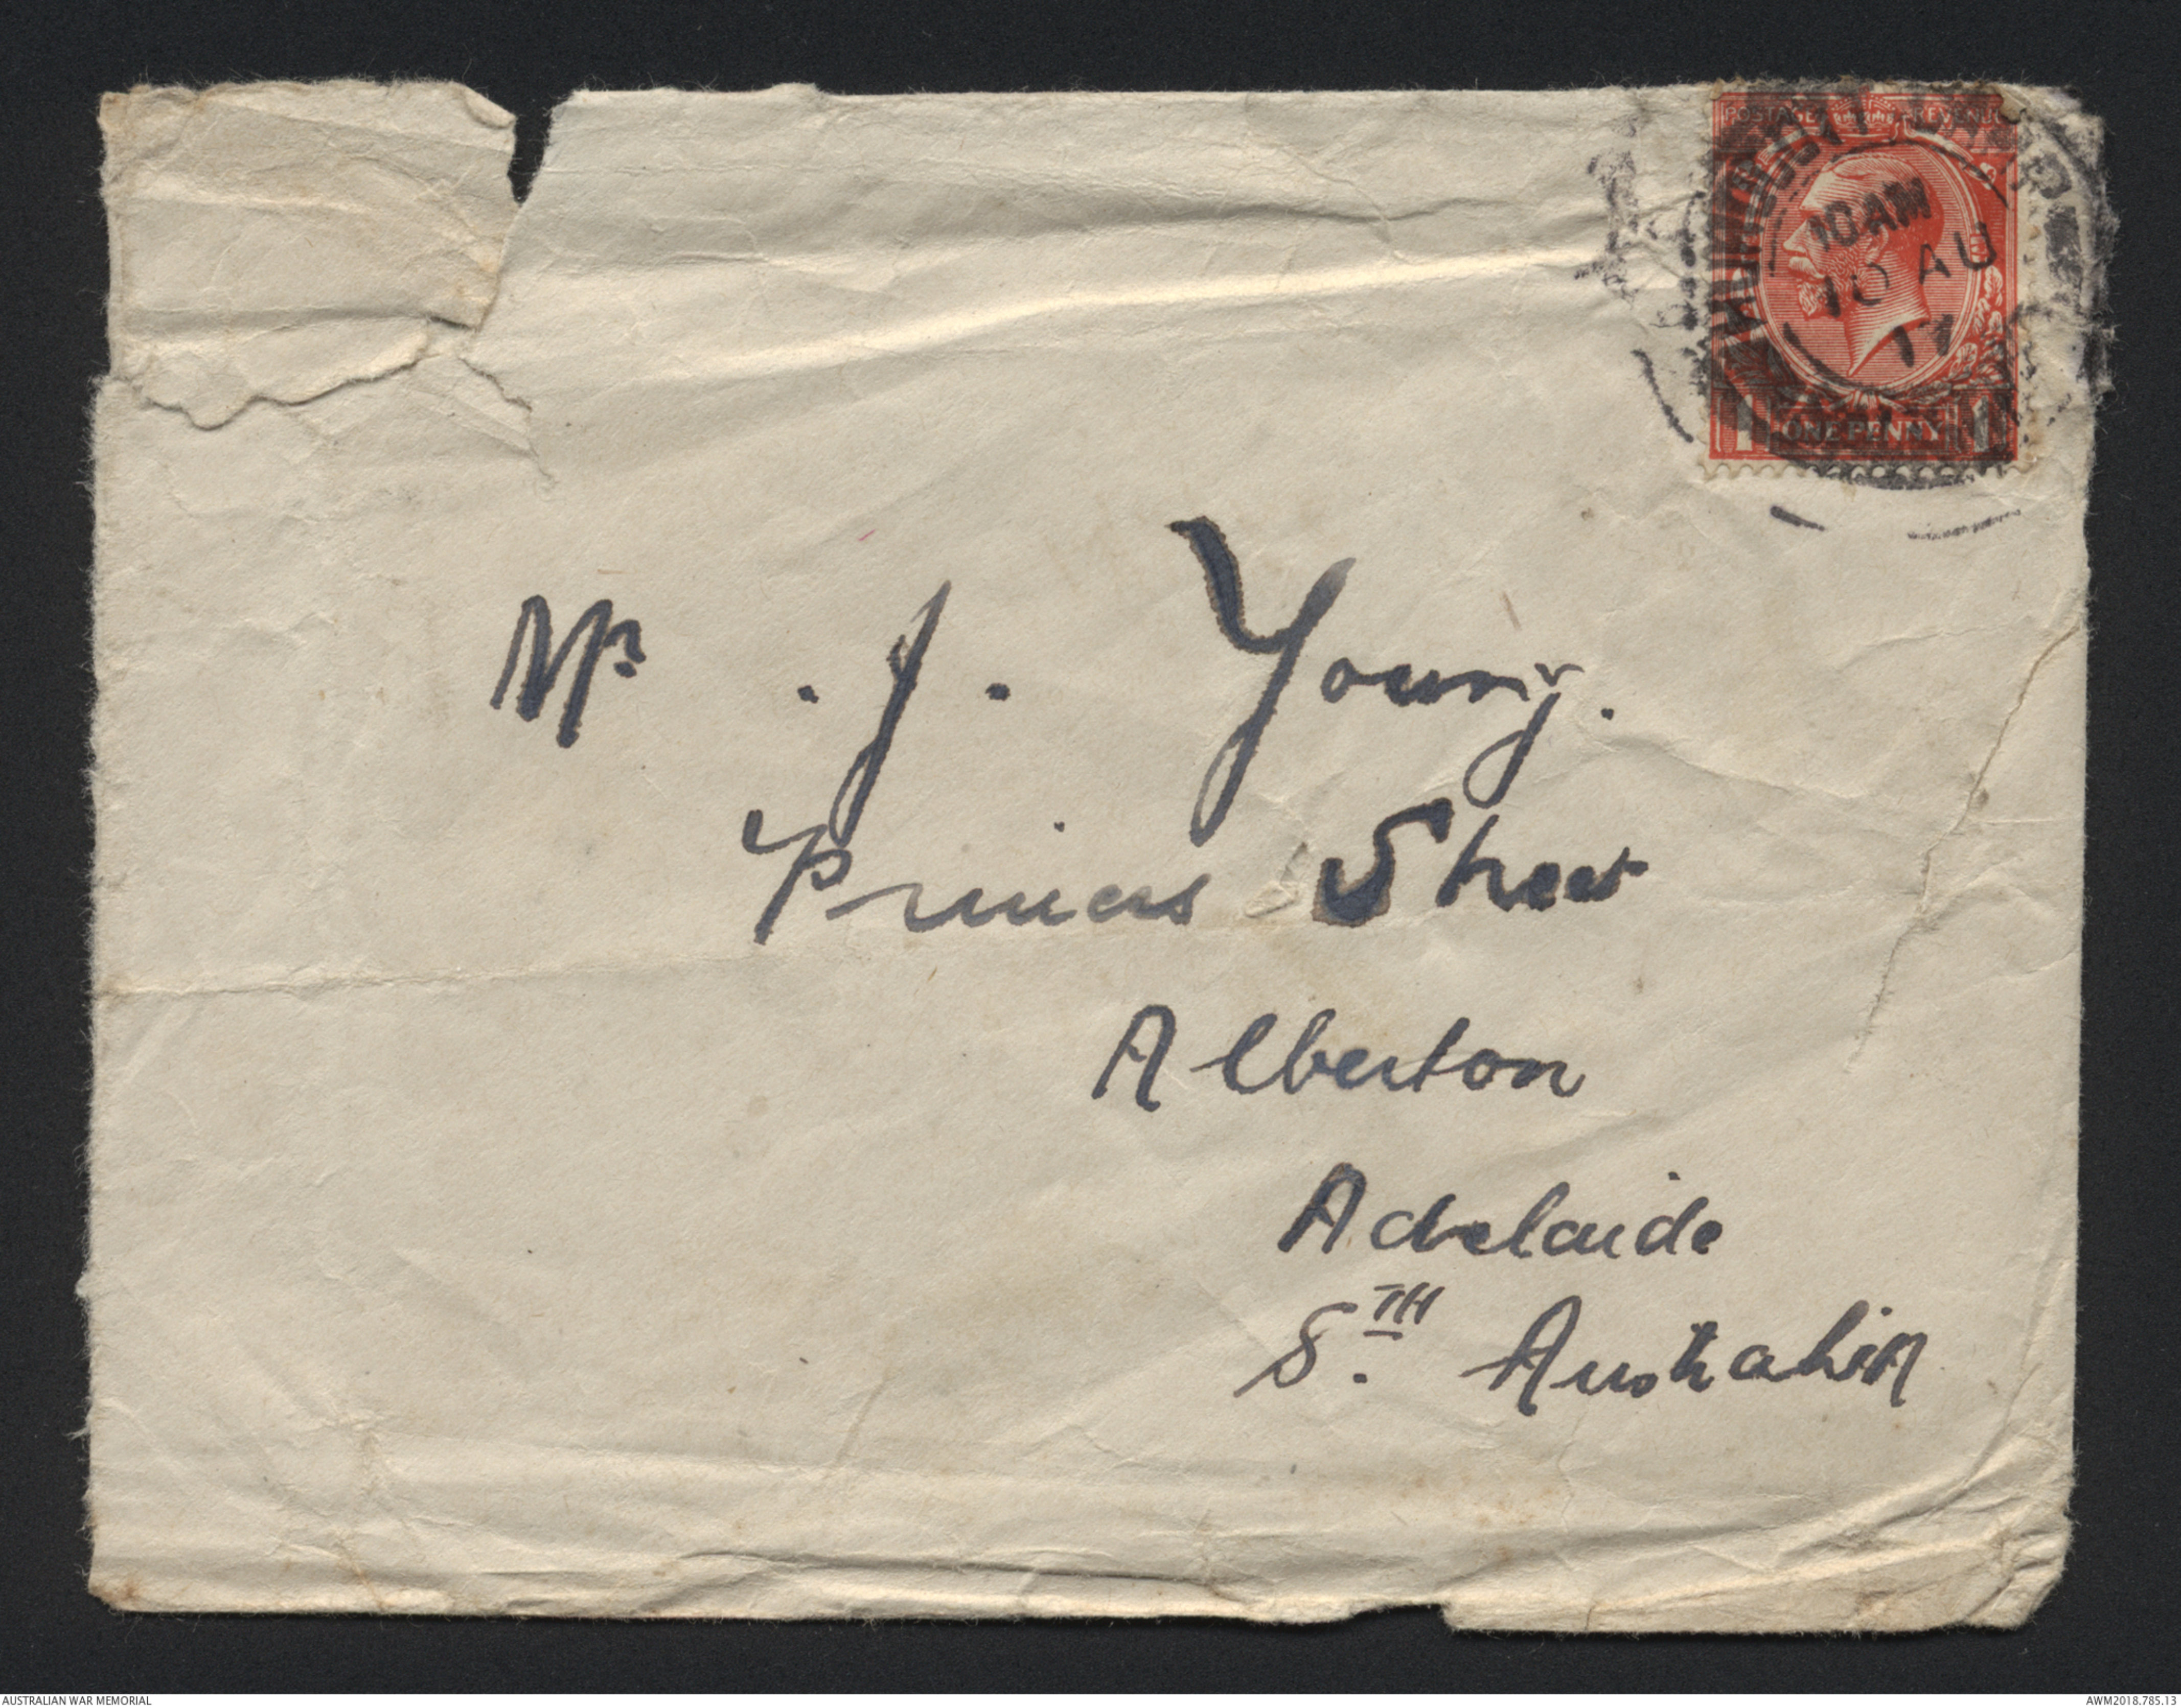 POSTAGE REVENUE
10 AM
10 AU
17
ONE PENNY
Mr. J. Young.
Princes Street
Alberton
Adelaide
S.TH Australia
AUSTRALIAN WAR MEMORIAL
AWM2018.785.13